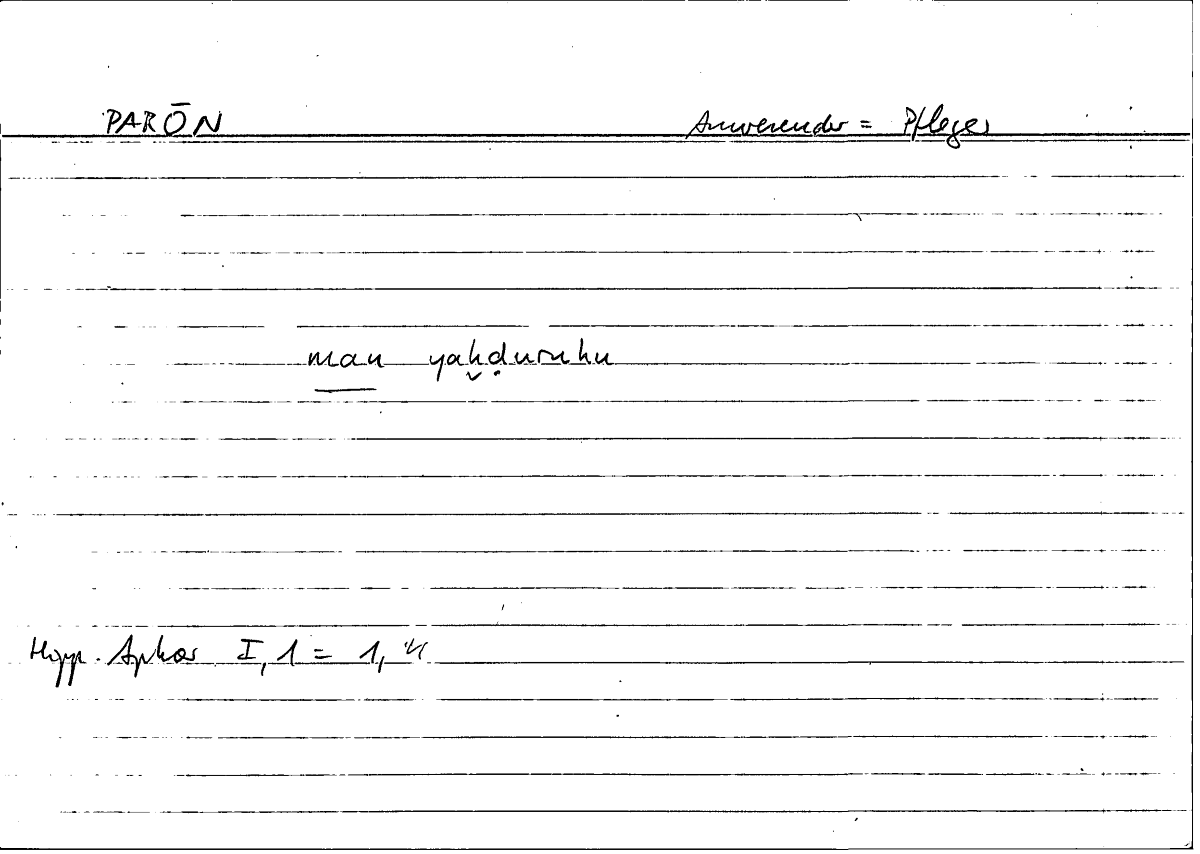 PARŌN Anwesender = Pfleger
man yaḫḍuruhu
Hipp. Aphor I, 1 = 1,